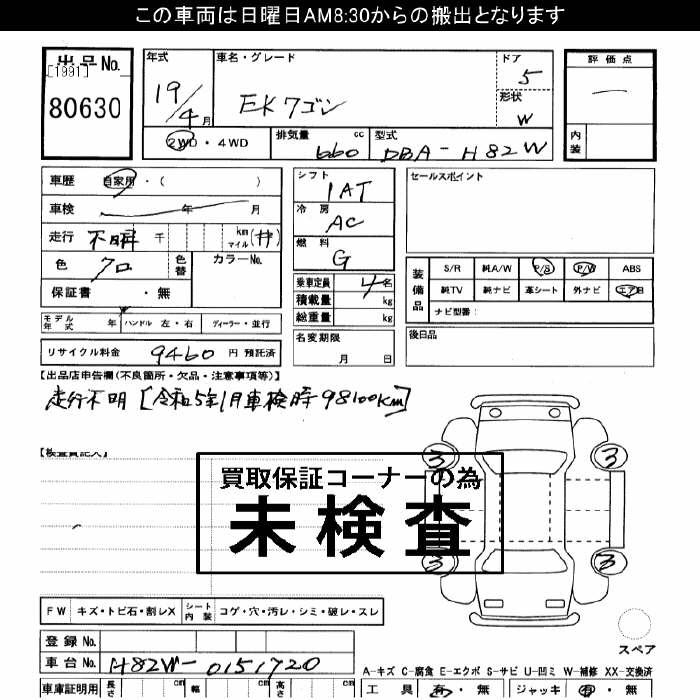 この車両は日曜日AM8:30からの搬出となります
出品No.
[1991]
80630
年式
19/4月
車名・グレード
EKワゴン
ドア
5
形状
W
評価点
―
内装
2WD・4WD
排気量 cc
660
型式
DBA-H82W
車歴 自家用・( )
車検 年 月
走行 不明 千 km マイル (#)
色 クロ 色替 カラーNo.
保証書 ・無
モデル年式 年 ハンドル 左・右 ディーラー・並行
リサイクル料金 9460 円 預託済
シフト
1AT
冷房
AC
燃料
G
乗車定員 4名
積載量 kg
総重量 kg
名変期限
月 日
セールスポイント
装備品
S/R 純A/W P/S P/W ABS
純TV 純ナビ 革シート 外ナビ エアB
ナビ型番:
後日品
【出品店申告欄(不良箇所・欠品・注意事項等)】
走行不明[令和5年1月車検時98100km]
【検査員記入】
買取保証コーナーの為
未検査
3 3
3 3
FW キズ・トビ石・割レX シート内装 コゲ・穴・汚レ・シミ・破レ・スレ
スペア
登録No.
車台No. H82W-0151720
A-キズ C-腐食 E-エクボ S-サビ U-凹ミ W-補修 XX-交換済
車庫証明用 長さ cm 幅 cm 高さ cm
工具 有・無 ジャッキ 有・無